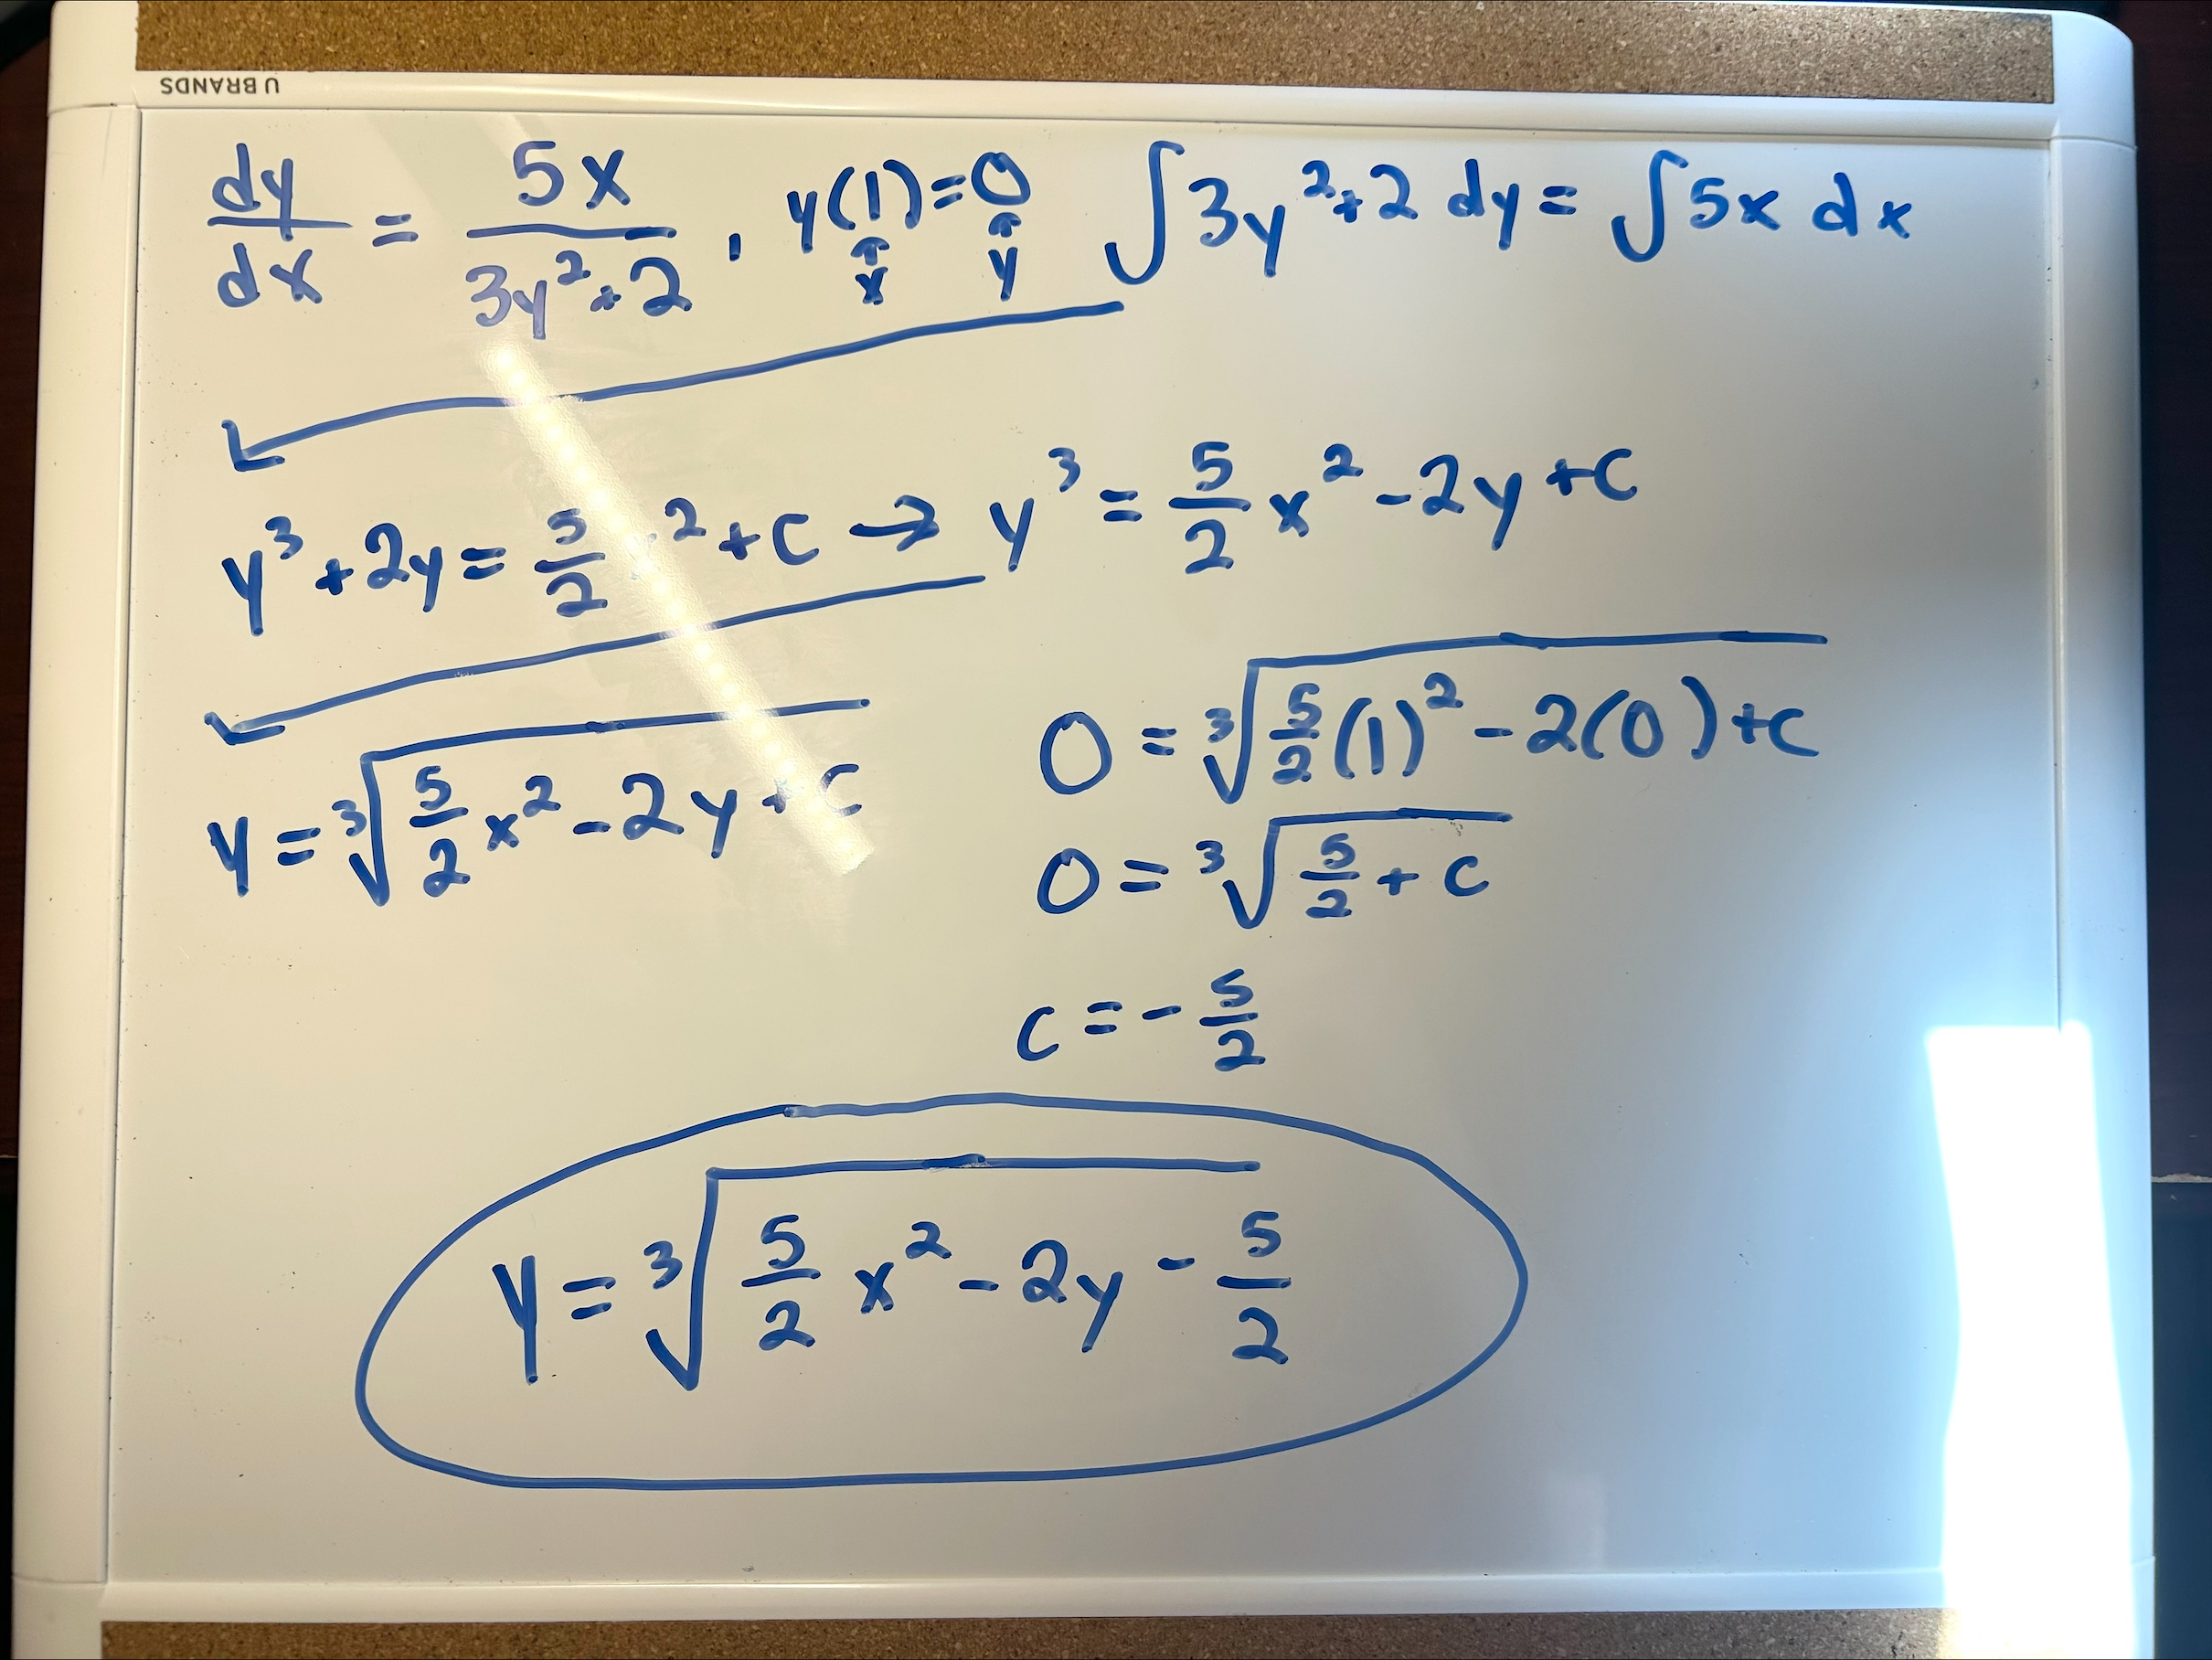 U BRANDS
dy/dx = 5x/(3y²+2), y(1)=0 ∫3y²+2 dy = ∫5x dx
↑ ↑
x y
y³+2y = 5/2 x²+c → y³ = 5/2 x² - 2y + c
y = ∛(5/2 x² - 2y + c)
0 = ∛(5/2 (1)² - 2(0) + c)
0 = ∛(5/2 + c)
c = - 5/2
y = ∛(5/2 x² - 2y - 5/2)